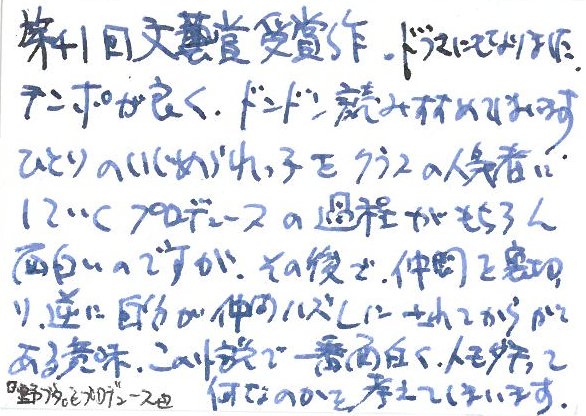 第41回文藝賞受賞作。ドラマにもなりました。
テンポが良く、ドンドン読みすすめてしまいます
ひとりのいじめられっ子をクラスの人気者に
していくプロデュースの過程がもちろん
面白いのですが、その後で、仲間を裏切
り、逆に自分が仲間ハズレにされてからが
ある意味、この小説で一番面白く、人気者って
何なのかを考えてしまいます。
『野ブタ。をプロデュース』